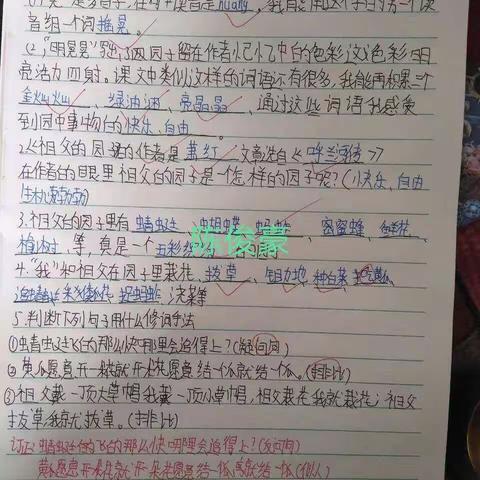 音组一个词摇晃。
(2)"明晃晃"写出了园子留在作者记忆中的色彩这色彩明
亮活力四射。课文中类似这样的词语还有很多,我能再积累三个
金灿灿、绿油油、亮晶晶、通过这些词语我感受
到园中事物的快乐、自由。
2.《祖父的园子》的作者是萧红 文章选自《呼兰河传》
在作者的眼里祖父的园子是一个怎样的园子呢?(快乐、自由
生机勃勃)
3.祖父的园子里有蜻蜓、蝴蝶、蚂蚱、蜜蜂、
植树、等,真是一个五彩
陈俊豪
4."我"和祖父在园子里栽花、拔草、种白菜
采倭瓜花 捉蚂蚱 浇菜等
5.判断下列句子用什么修词手法
①蜻虫蜓飞的那么快哪里会追得上?(疑问问)
②黄瓜愿意开一朵就开一朵愿意结一个瓜就结一个瓜。(排比)
③祖父戴一顶大草帽我戴一顶小草帽,祖父栽花我就栽花;祖父
拔草,我就拔草。(排比)
订正:蜻蜓飞的那么快哪里会追得上?(反问)
黄瓜愿意开一朵花就开一朵花愿意结一个瓜就结一个瓜(拟人)